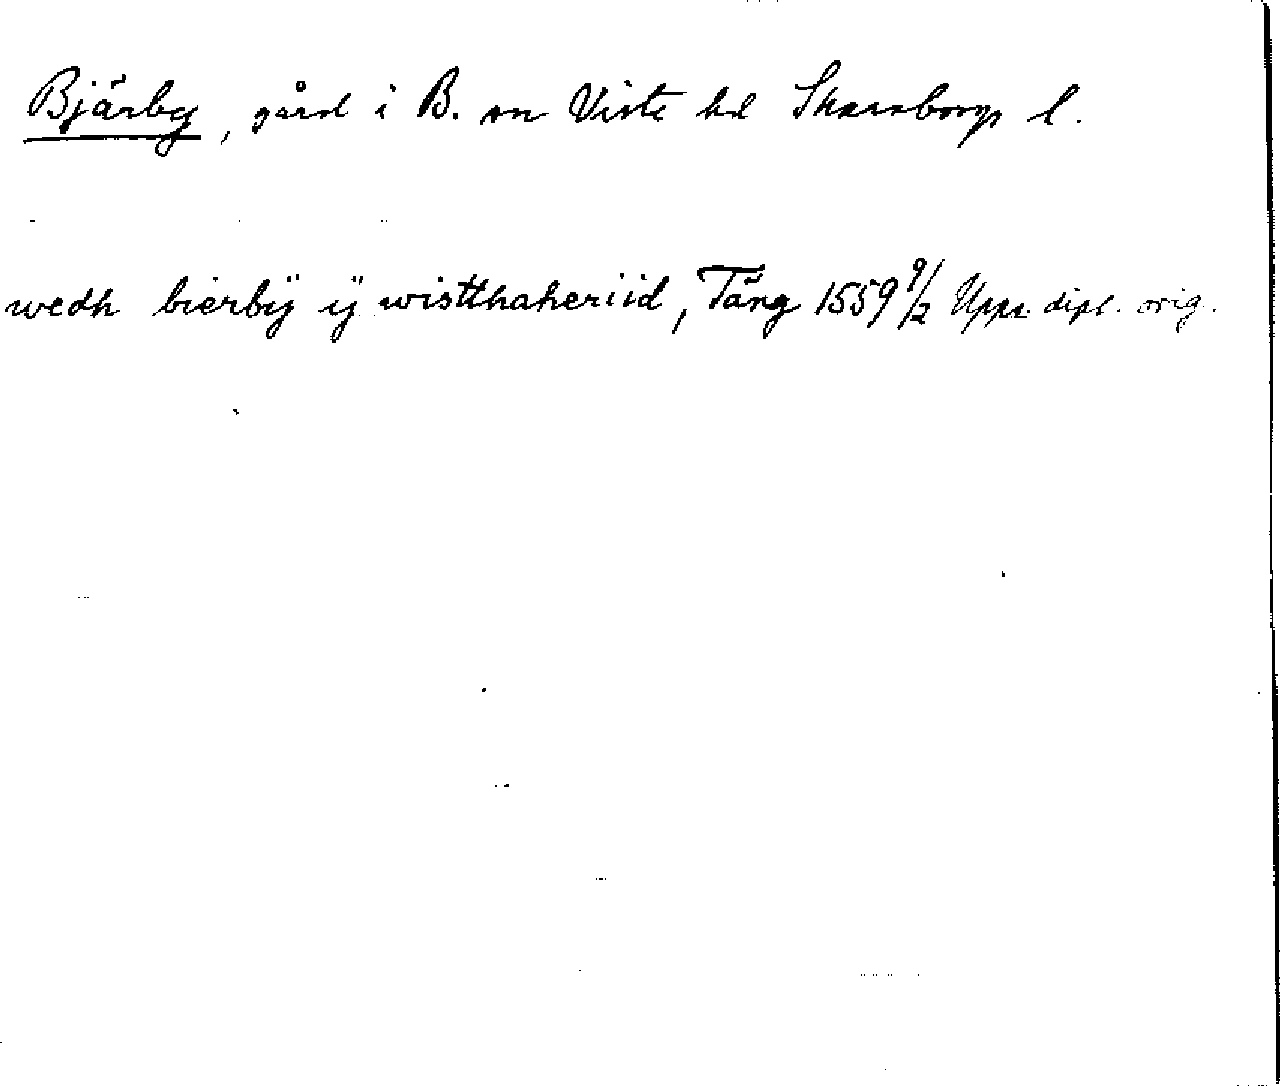 Bjärby, gård i B. sn Viste hd Skaraborgs l.
wedh bierbÿ ÿ wistthaheriid, Täng 1559 9/2 Upps. dipl. orig.